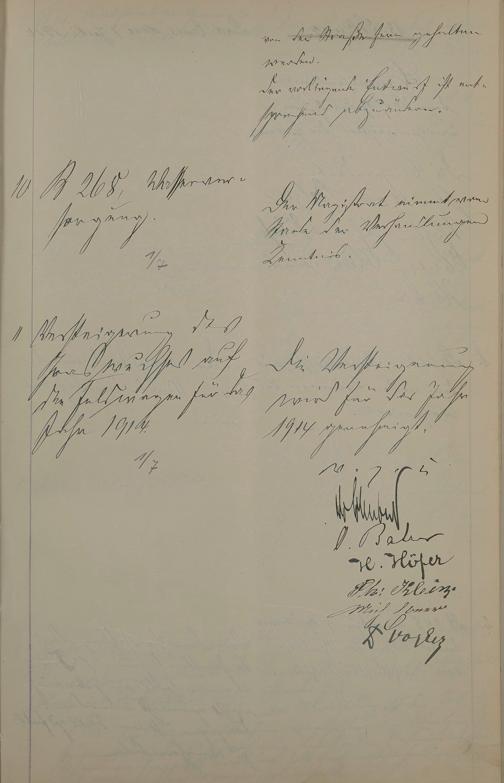 von der Straßenseite gehalten
werden.
Der vorliegende Entwurf ist ent-
sprechend abzuändern.
10 B 268, Wasserver-
sorgung.
1/7
Der Magistrat nimmt vom
Stande der Verhandlungen
Kenntnis.
11 Versteigerung des
Graswuchses auf
den Feldwegen für das
Jahr 1914.
1/7
Die Versteigerung
wird für das Jahr
1914 genehmigt.
v. g. u.
H. Höfer
Ph. Klein